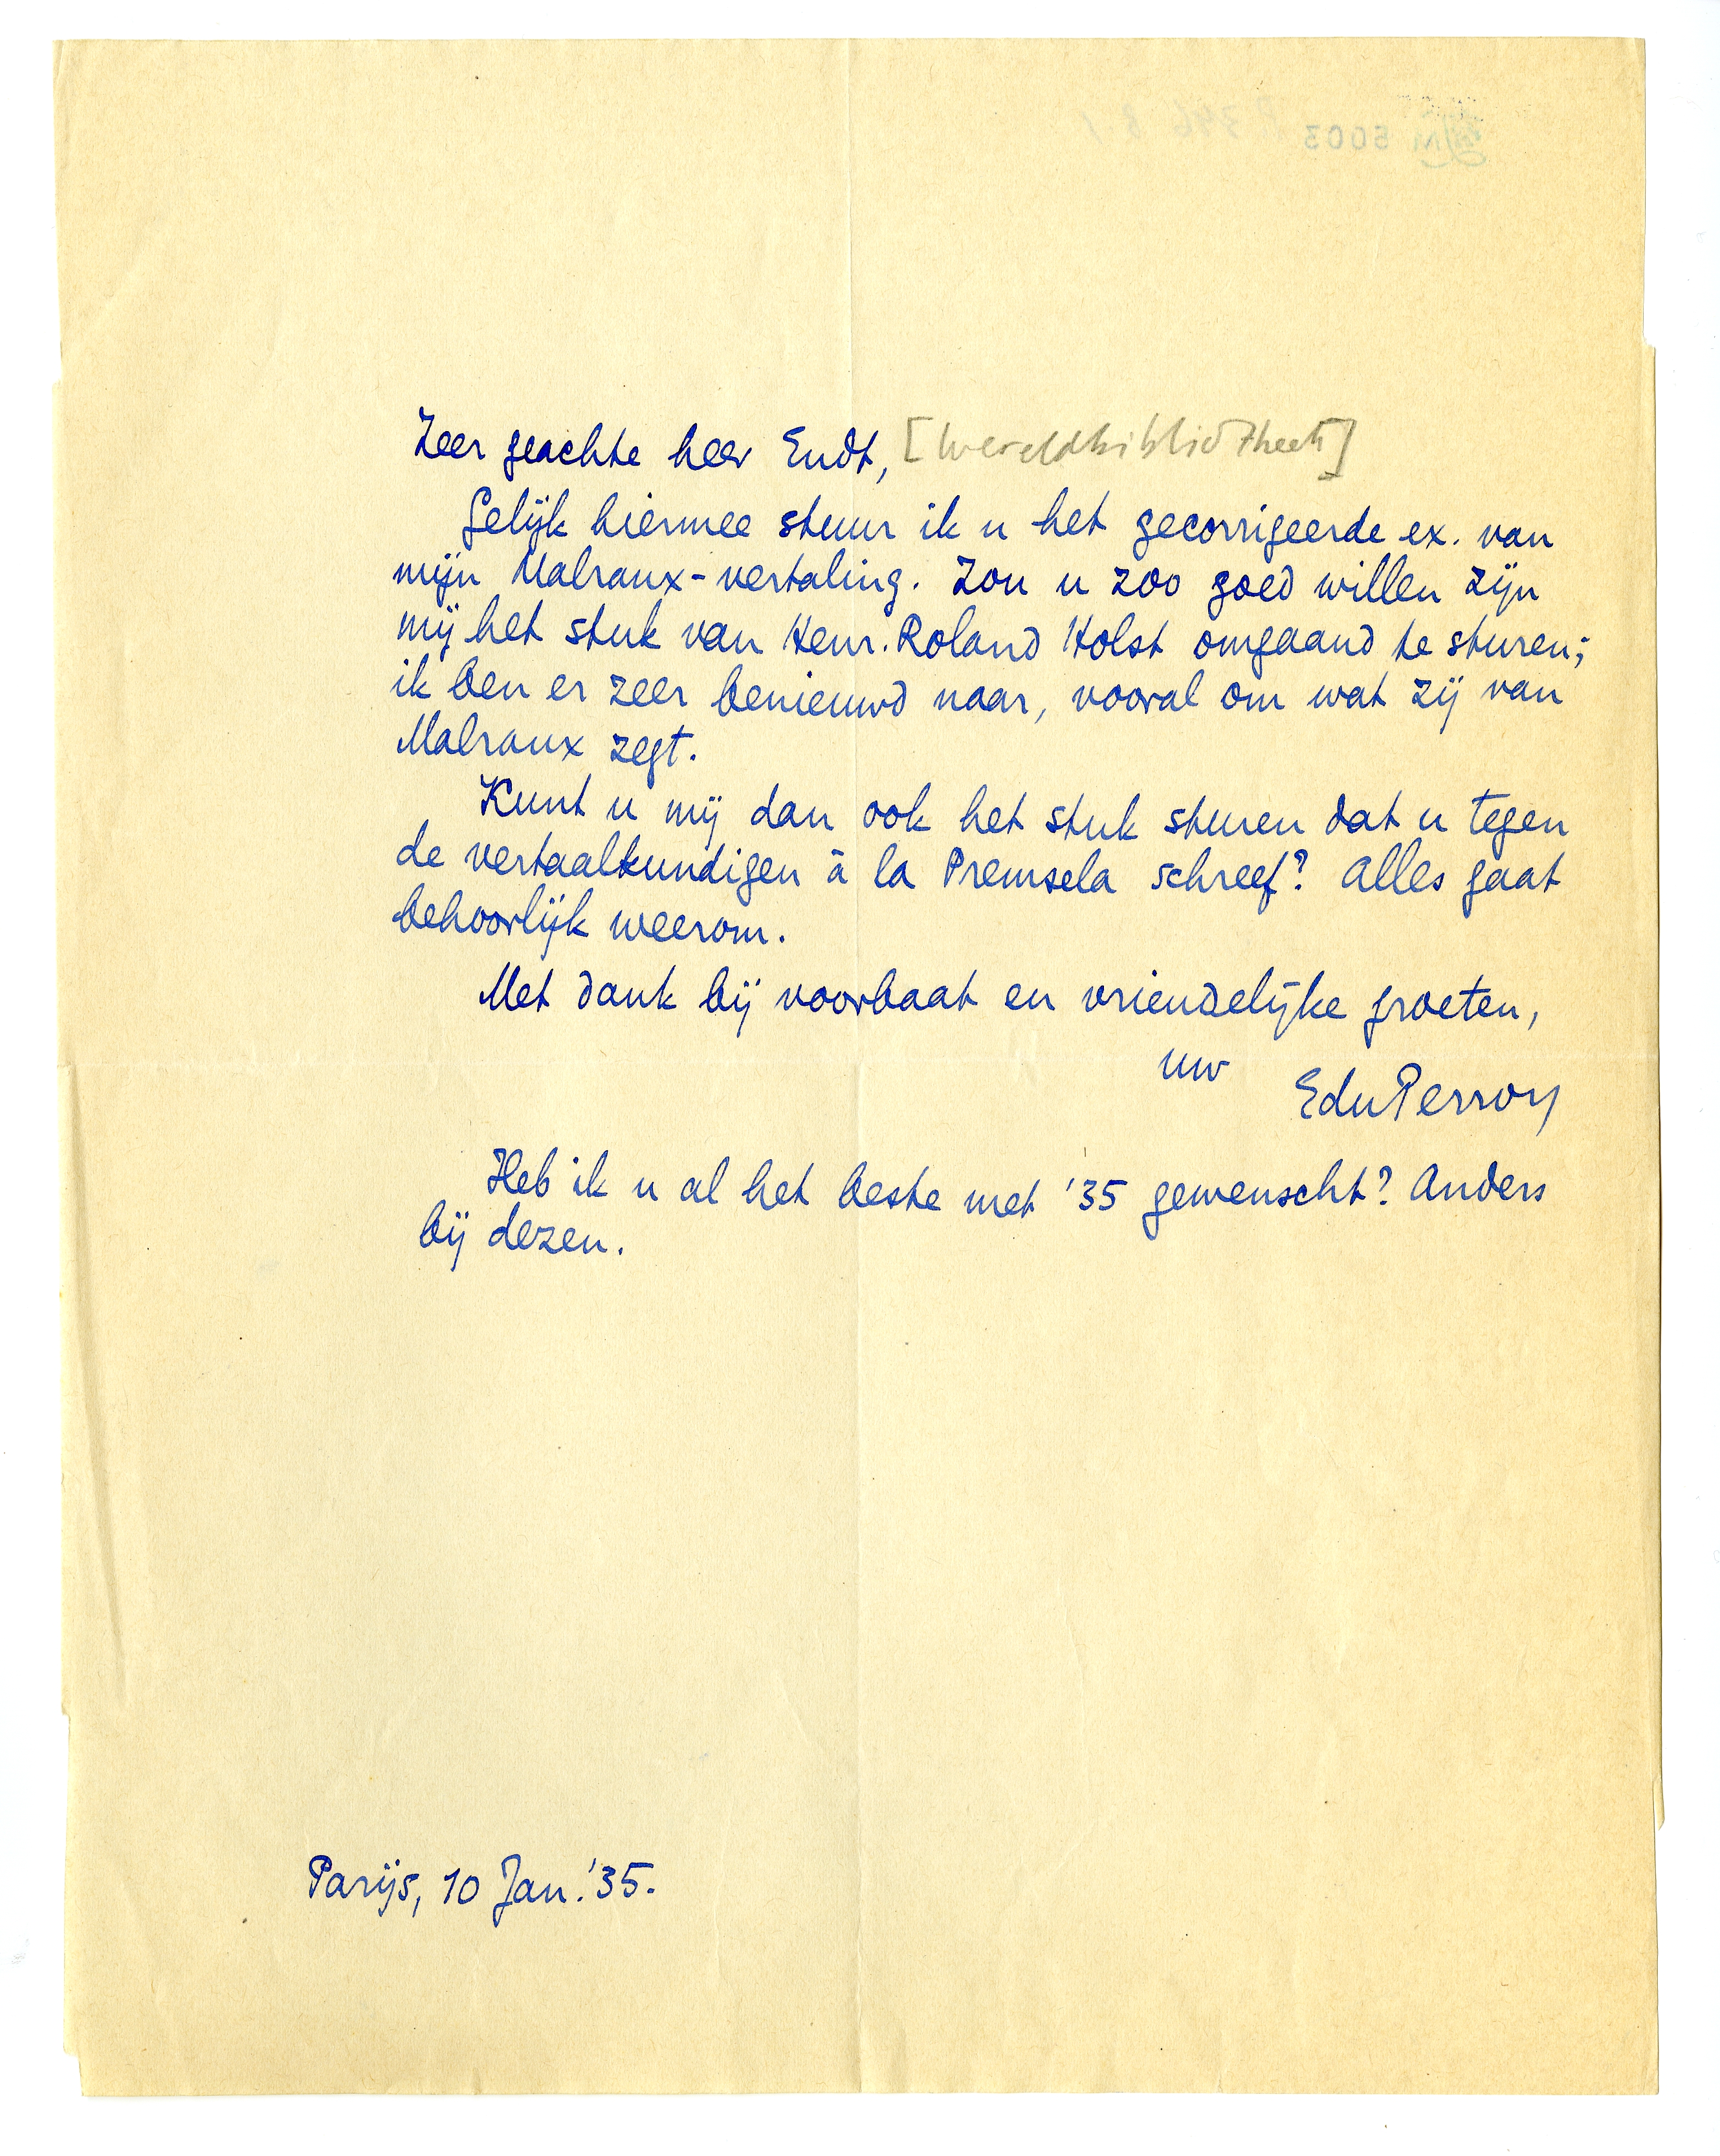 Zeer geachte heer Endt, [Wereldbibliotheek]
Gelijk hiermee stuur ik u het gecorrigeerde ex. van
mijn Malraux-vertaling. Zou u zoo goed willen zijn
mij het stuk van Henr. Roland Holst omgaand te sturen;
ik ben er zeer benieuwd naar, vooral om wat zij van
Malraux zegt.
Kunt u mij dan ook het stuk sturen dat u tegen
de vertaalkundigen à la Premsela schreef? Alles gaat
behoorlijk weerom.
Met dank bij voorbaat en vriendelijke groeten,
uw
EduPerron
Heb ik u al het beste met '35 gewenscht? Anders
bij dezen.
Parijs, 10 Jan. '35.